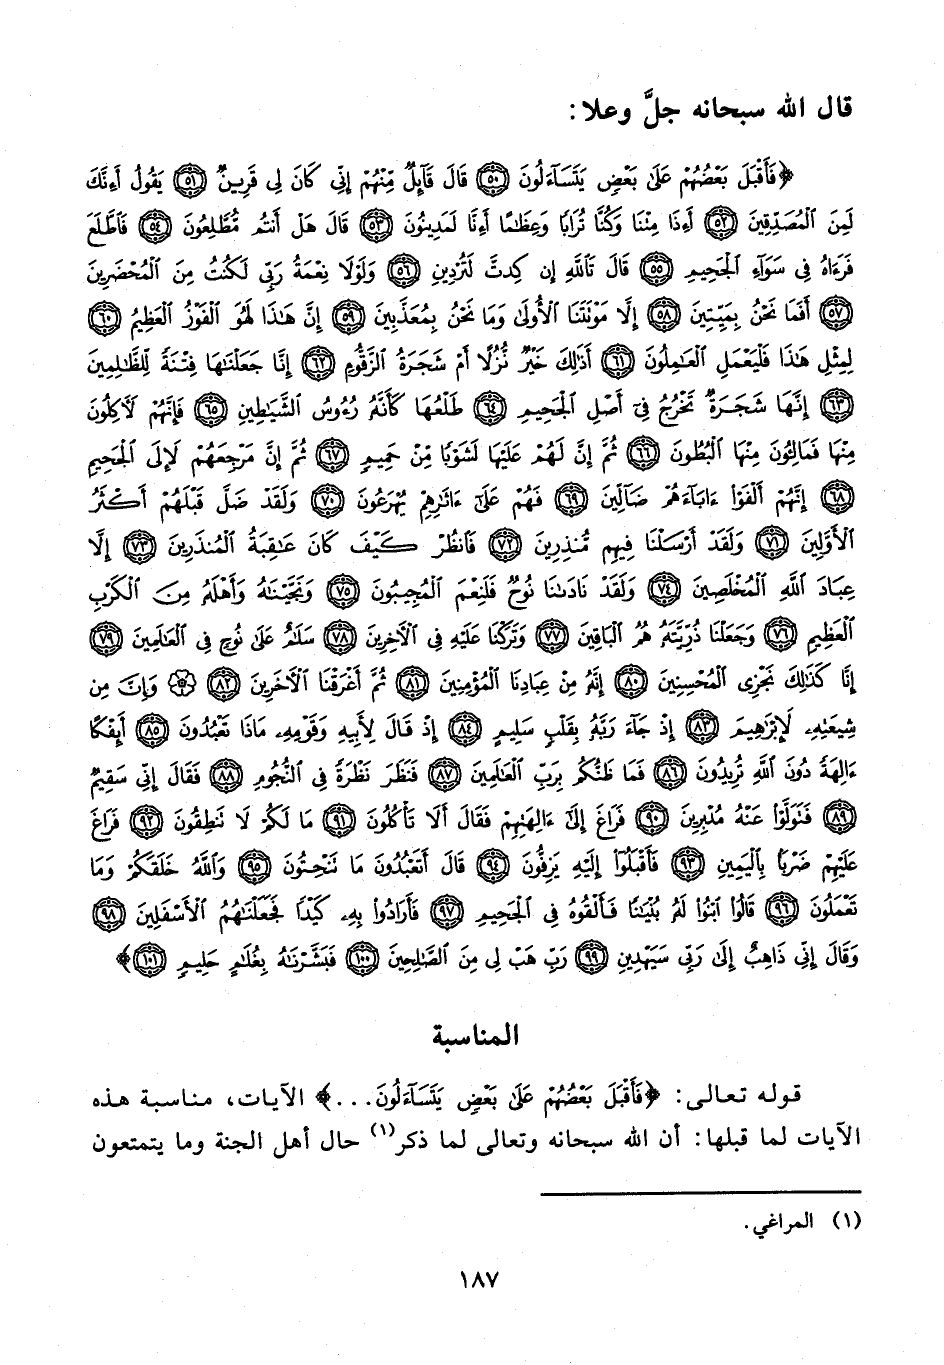 قال الله سبحانه جلَّ وعلا:
﴿فَأَقْبَلَ بَعْضُهُمْ عَلَىٰ بَعْضٍ يَتَسَآءَلُونَ ۝٥٠ قَالَ قَآئِلٌ مِّنْهُمْ إِنِّى كَانَ لِى قَرِينٌ ۝٥١ يَقُولُ أَءِنَّكَ
لَمِنَ ٱلْمُصَدِّقِينَ ۝٥٢ أَءِذَا مِتْنَا وَكُنَّا تُرَابًا وَعِظَٰمًا أَءِنَّا لَمَدِينُونَ ۝٥٣ قَالَ هَلْ أَنتُم مُّطَّلِعُونَ ۝٥٤ فَٱطَّلَعَ
فَرَءَاهُ فِى سَوَآءِ ٱلْجَحِيمِ ۝٥٥ قَالَ تَٱللَّهِ إِن كِدتَّ لَتُرْدِينِ ۝٥٦ وَلَوْلَا نِعْمَةُ رَبِّى لَكُنتُ مِنَ ٱلْمُحْضَرِينَ
۝٥٧ أَفَمَا نَحْنُ بِمَيِّتِينَ ۝٥٨ إِلَّا مَوْتَتَنَا ٱلْأُولَىٰ وَمَا نَحْنُ بِمُعَذَّبِينَ ۝٥٩ إِنَّ هَٰذَا لَهُوَ ٱلْفَوْزُ ٱلْعَظِيمُ ۝٦٠
لِمِثْلِ هَٰذَا فَلْيَعْمَلِ ٱلْعَٰمِلُونَ ۝٦١ أَذَٰلِكَ خَيْرٌ نُّزُلًا أَمْ شَجَرَةُ ٱلزَّقُّومِ ۝٦٢ إِنَّا جَعَلْنَٰهَا فِتْنَةً لِّلظَّٰلِمِينَ
۝٦٣ إِنَّهَا شَجَرَةٌ تَخْرُجُ فِىٓ أَصْلِ ٱلْجَحِيمِ ۝٦٤ طَلْعُهَا كَأَنَّهُۥ رُءُوسُ ٱلشَّيَٰطِينِ ۝٦٥ فَإِنَّهُمْ لَأَكِلُونَ
مِنْهَا فَمَالِـُٔونَ مِنْهَا ٱلْبُطُونَ ۝٦٦ ثُمَّ إِنَّ لَهُمْ عَلَيْهَا لَشَوْبًا مِّنْ حَمِيمٍ ۝٦٧ ثُمَّ إِنَّ مَرْجِعَهُمْ لَإِلَى ٱلْجَحِيمِ
۝٦٨ إِنَّهُمْ أَلْفَوْا۟ ءَابَآءَهُمْ ضَآلِّينَ ۝٦٩ فَهُمْ عَلَىٰٓ ءَاثَٰرِهِمْ يُهْرَعُونَ ۝٧٠ وَلَقَدْ ضَلَّ قَبْلَهُمْ أَكْثَرُ
ٱلْأَوَّلِينَ ۝٧١ وَلَقَدْ أَرْسَلْنَا فِيهِم مُّنذِرِينَ ۝٧٢ فَٱنظُرْ كَيْفَ كَانَ عَٰقِبَةُ ٱلْمُنذَرِينَ ۝٧٣ إِلَّا
عِبَادَ ٱللَّهِ ٱلْمُخْلَصِينَ ۝٧٤ وَلَقَدْ نَادَىٰنَا نُوحٌ فَلَنِعْمَ ٱلْمُجِيبُونَ ۝٧٥ وَنَجَّيْنَٰهُ وَأَهْلَهُۥ مِنَ ٱلْكَرْبِ
ٱلْعَظِيمِ ۝٧٦ وَجَعَلْنَا ذُرِّيَّتَهُۥ هُمُ ٱلْبَاقِينَ ۝٧٧ وَتَرَكْنَا عَلَيْهِ فِى ٱلْأَخِرِينَ ۝٧٨ سَلَٰمٌ عَلَىٰ نُوحٍ فِى ٱلْعَٰلَمِينَ ۝٧٩
إِنَّا كَذَٰلِكَ نَجْزِى ٱلْمُحْسِنِينَ ۝٨٠ إِنَّهُۥ مِنْ عِبَادِنَا ٱلْمُؤْمِنِينَ ۝٨١ ثُمَّ أَغْرَقْنَا ٱلْأَخَرِينَ ۝٨٢ ۞ وَإِنَّ مِن
شِيعَتِهِۦ لَإِبْرَٰهِيمَ ۝٨٣ إِذْ جَآءَ رَبَّهُۥ بِقَلْبٍ سَلِيمٍ ۝٨٤ إِذْ قَالَ لِأَبِيهِ وَقَوْمِهِۦ مَاذَا تَعْبُدُونَ ۝٨٥ أَئِفْكًا
ءَالِهَةً دُونَ ٱللَّهِ تُرِيدُونَ ۝٨٦ فَمَا ظَنُّكُم بِرَبِّ ٱلْعَٰلَمِينَ ۝٨٧ فَنَظَرَ نَظْرَةً فِى ٱلنُّجُومِ ۝٨٨ فَقَالَ إِنِّى سَقِيمٌ
۝٨٩ فَتَوَلَّوْا۟ عَنْهُ مُدْبِرِينَ ۝٩٠ فَرَاغَ إِلَىٰٓ ءَالِهَتِهِمْ فَقَالَ أَلَا تَأْكُلُونَ ۝٩١ مَا لَكُمْ لَا تَنطِقُونَ ۝٩٢ فَرَاغَ
عَلَيْهِمْ ضَرْبًۢا بِٱلْيَمِينِ ۝٩٣ فَأَقْبَلُوٓا۟ إِلَيْهِ يَزِفُّونَ ۝٩٤ قَالَ أَتَعْبُدُونَ مَا تَنْحِتُونَ ۝٩٥ وَٱللَّهُ خَلَقَكُمْ وَمَا
تَعْمَلُونَ ۝٩٦ قَالُوا۟ ٱبْنُوا۟ لَهُۥ بُنْيَٰنًا فَأَلْقُوهُ فِى ٱلْجَحِيمِ ۝٩٧ فَأَرَادُوا۟ بِهِۦ كَيْدًا فَجَعَلْنَٰهُمُ ٱلْأَسْفَلِينَ ۝٩٨
وَقَالَ إِنِّى ذَاهِبٌ إِلَىٰ رَبِّى سَيَهْدِينِ ۝٩٩ رَبِّ هَبْ لِى مِنَ ٱلصَّٰلِحِينَ ۝١٠٠ فَبَشَّرْنَٰهُ بِغُلَٰمٍ حَلِيمٍ ۝١٠١﴾
المناسبة
قوله تعالى: ﴿فَأَقْبَلَ بَعْضُهُمْ عَلَىٰ بَعْضٍ يَتَسَآءَلُونَ...﴾ الآيات، مناسبة هذه
الآيات لما قبلها: أن الله سبحانه وتعالى لما ذكر(١) حال أهل الجنة وما يتمتعون
(١) المراغي.
١٨٧